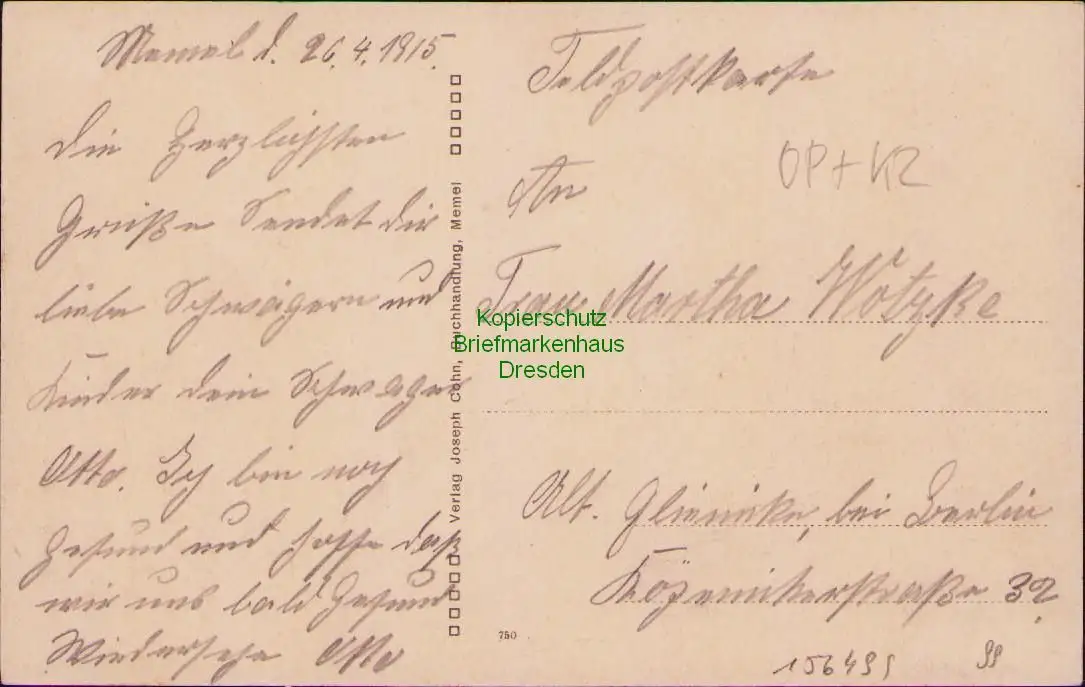 Memel d. 26.4.1915.
die Herzlichsten
Grüße Sendet dir
liebe Schwägern und
Kinder dein Schwager
Otto. Ich bin noch
Gesund und hoffe daß
wir uns bald Gesund
Wiedersehe Otto
Verlag Joseph Cohn, Buchhandlung, Memel
Feldpostkarte
OP+K2
An
Frau Martha Wotzke
Kopierschutz
Briefmarkenhaus
Dresden
Alt. Glienicke, bei Berlin
Köpenikerstraße 32.
750
156499
99